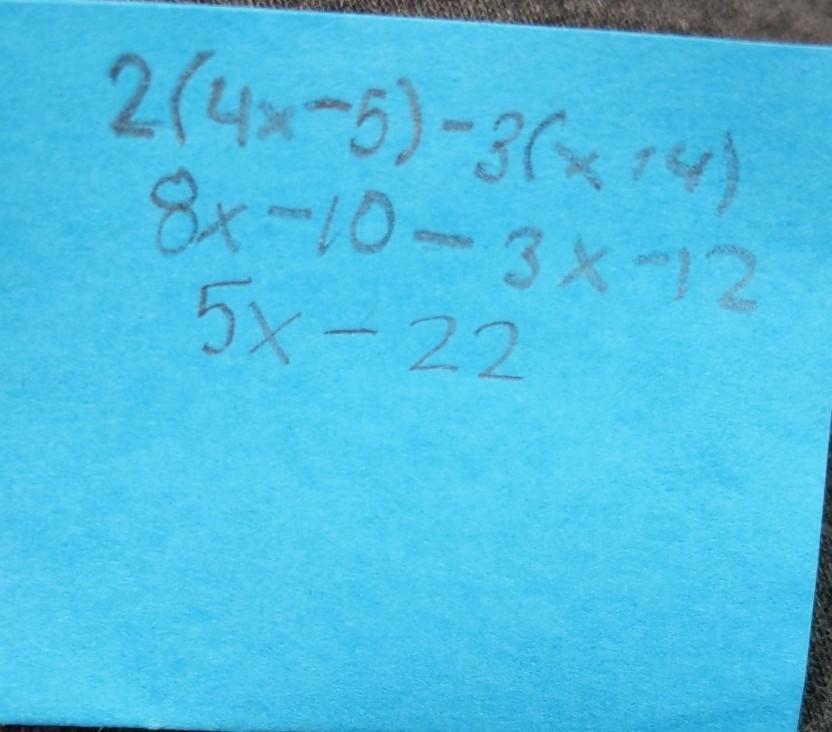 2(4x-5)-3(x+4)
8x-10-3x-12
5x-22